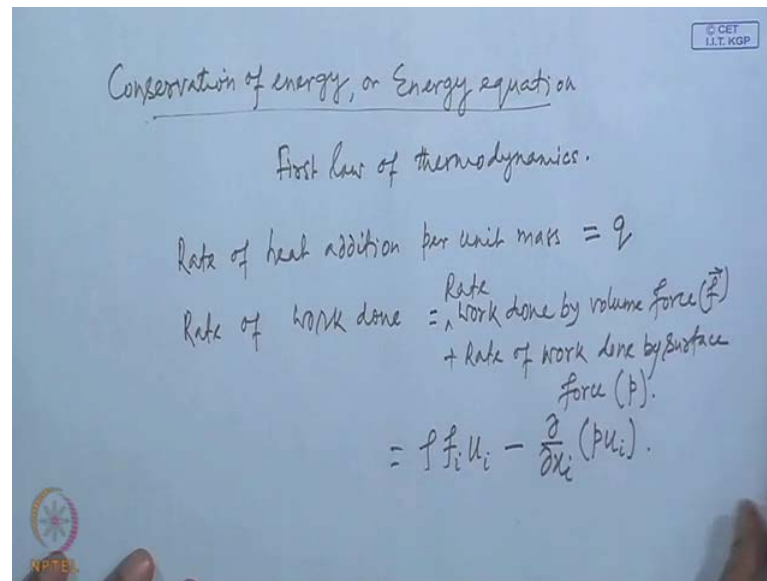 © CET
I.I.T. KGP
Conservation of energy, or Energy equation
First law of thermodynamics.
Rate of heat addition per unit mass = q
Rate of work done = Rate ^ work done by volume force (f⃗)
+ Rate of work done by surface
force (p).
= ρ f_i u_i − ∂/∂x_i (p u_i).
NPTEL